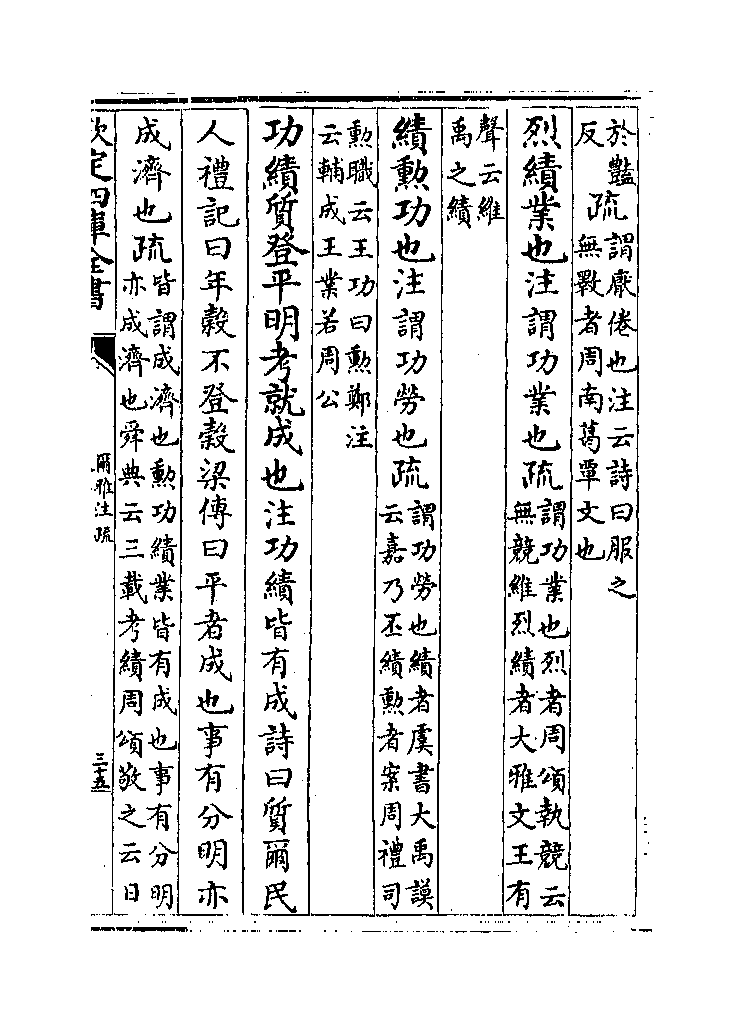 於豔
反
疏
謂厭倦也注云詩曰服之
無斁者周南葛覃文也
烈績業也注謂功業也疏
謂功業也烈者周頌執競云
無競維烈績者大雅文王有
聲云維
禹之績
績勲功也注謂功勞也疏
謂功勞也績者虞書大禹謨
云嘉乃丕績勲者案周禮司
勲職云王功曰勲鄭注
云輔成王業若周公
功績質登平明考就成也注功績皆有成詩曰質爾民
人禮記曰年穀不登穀梁傳曰平者成也事有分明亦
成濟也疏
皆謂成濟也勲功績業皆有成也事有分明
亦成濟也舜典云三載考績周頌敬之云日
欽定四庫全書
爾雅注疏
三十五